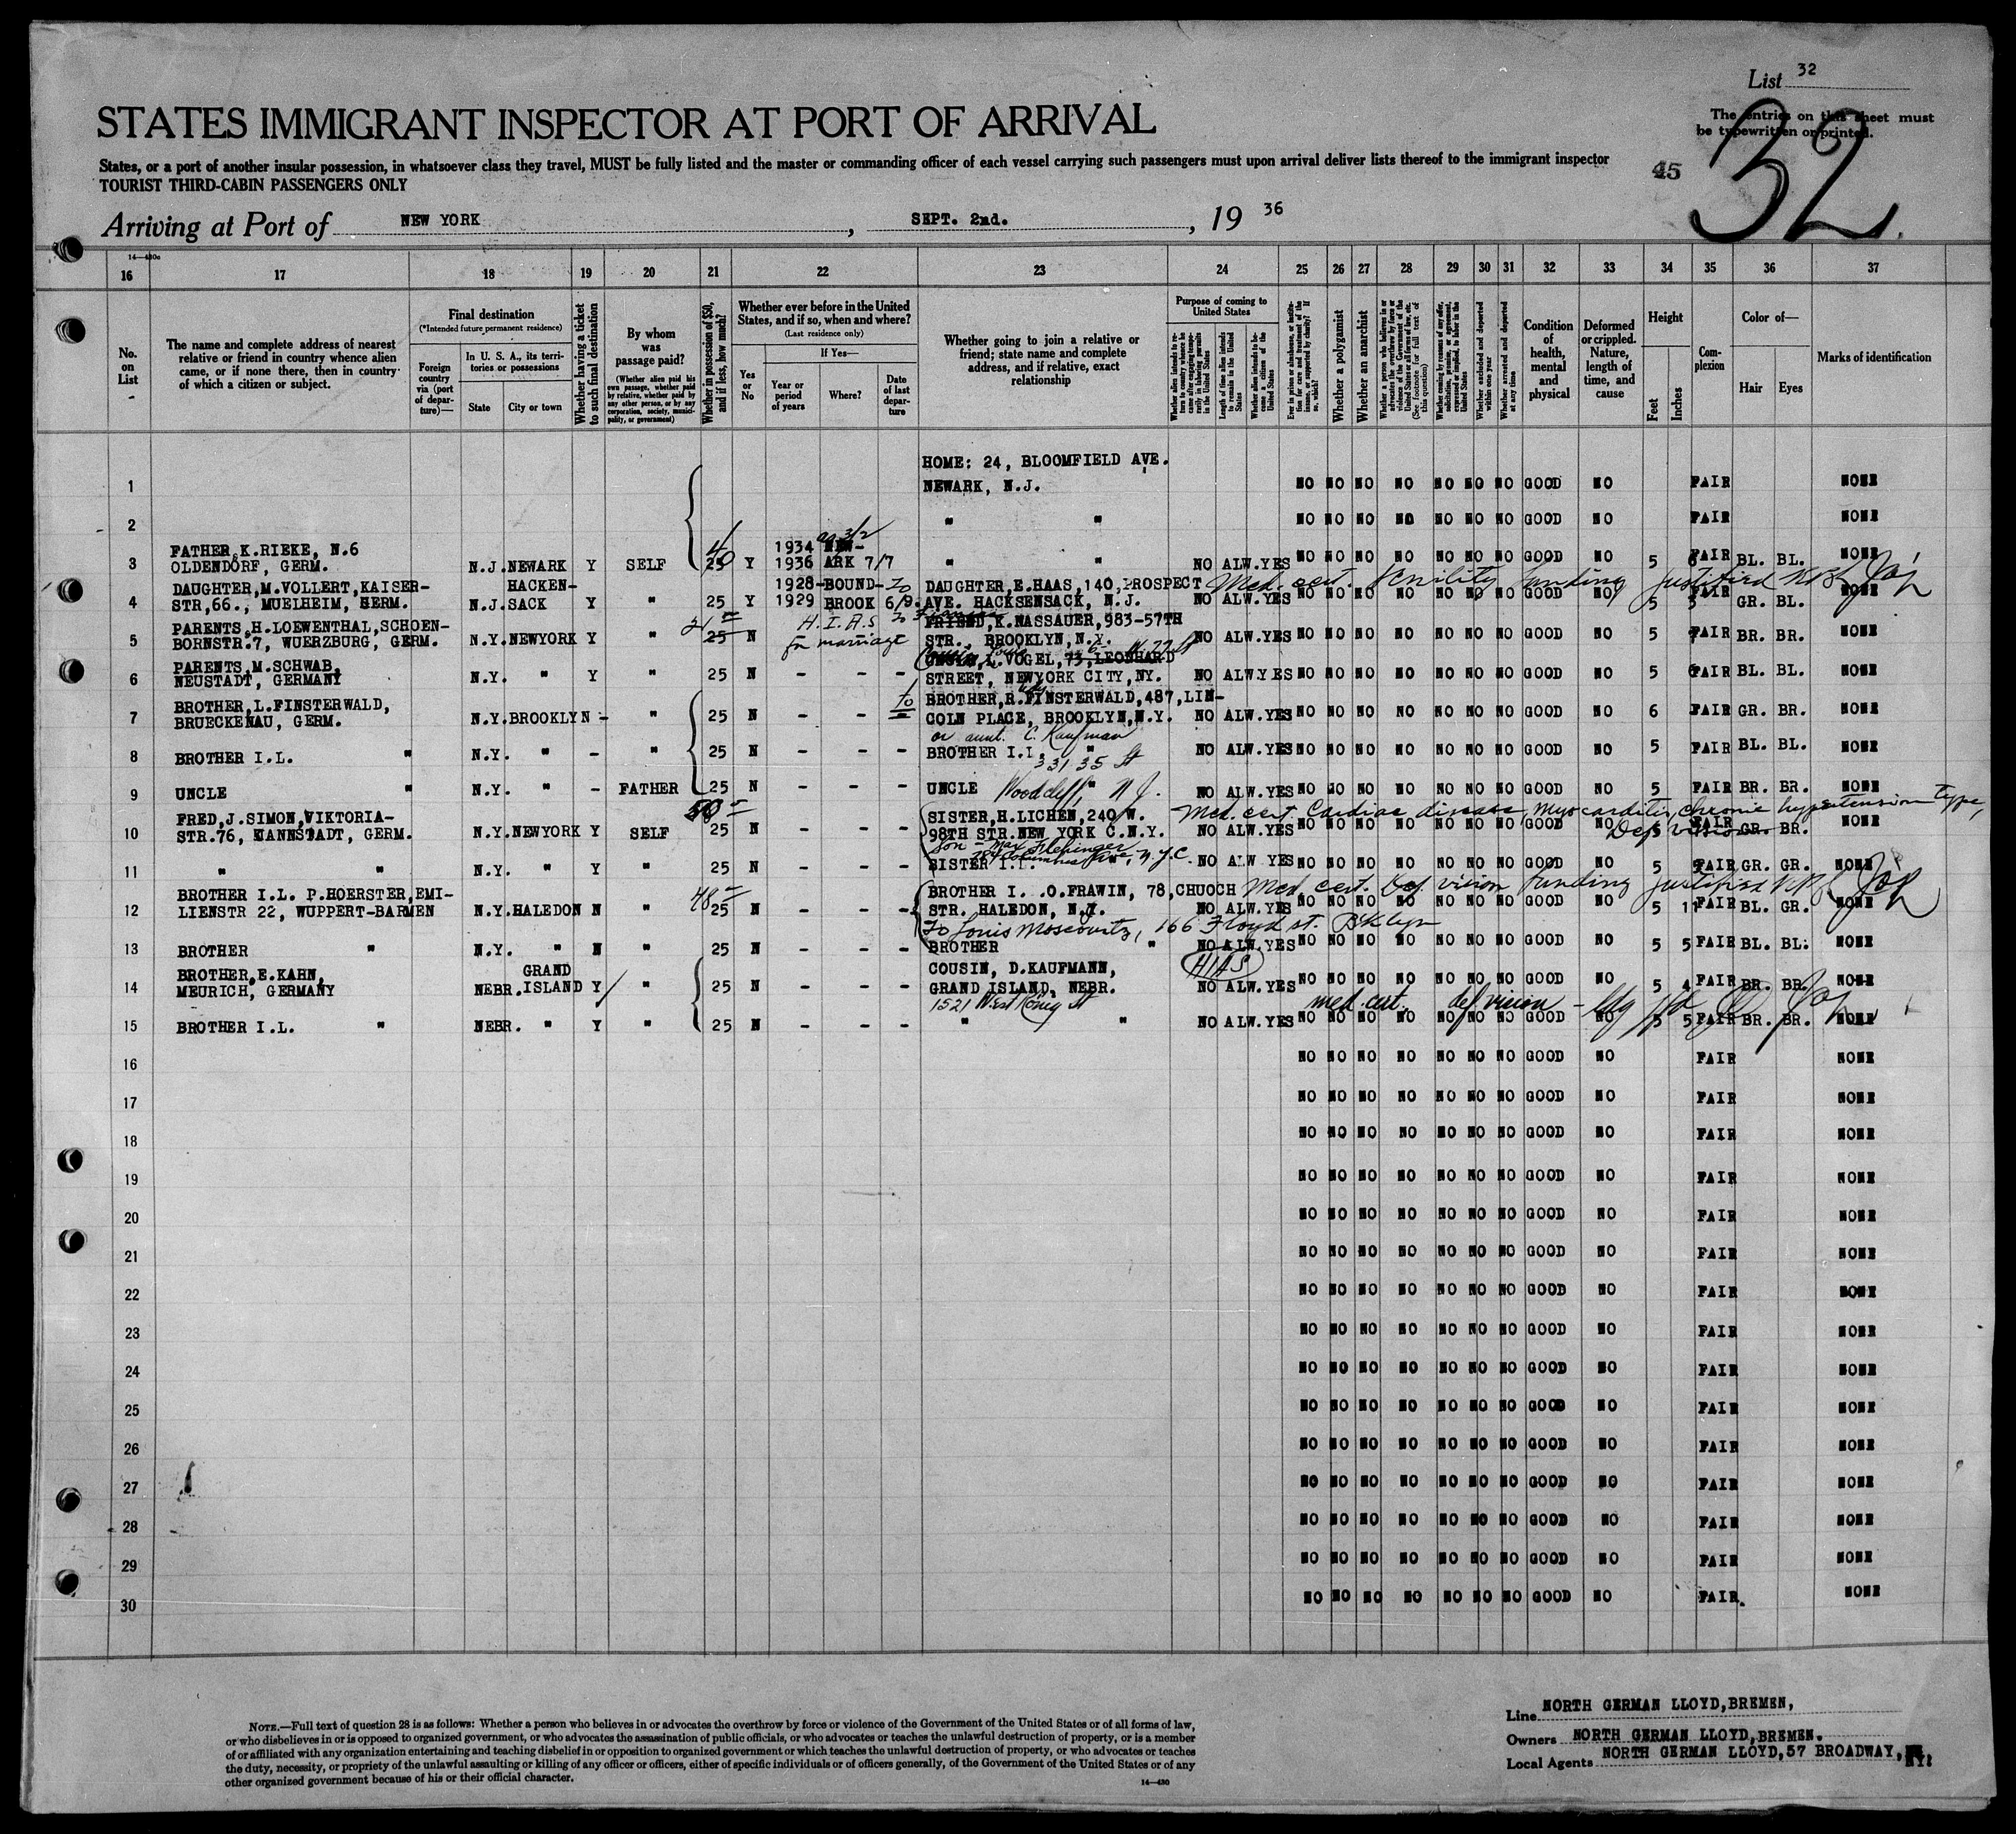 List 32
The entries on this sheet must
be typewritten or printed.
32
45
STATES IMMIGRANT INSPECTOR AT PORT OF ARRIVAL
States, or a port of another insular possession, in whatsoever class they travel, MUST be fully listed and the master or commanding officer of each vessel carrying such passengers must upon arrival deliver lists thereof to the immigrant inspector
TOURIST THIRD-CABIN PASSENGERS ONLY
Arriving at Port of NEW YORK, SEPT. 2nd., 19 36
16 17 18 19 20 21 22 23 24 25 26 27 28 29 30 31 32 33 34 35 36 37
No. on List
The name and complete address of nearest relative or friend in country whence alien came, or if none there, then in country of which a citizen or subject.
Final destination
(*Intended future permanent residence)
Foreign country via (port of departure)—
In U. S. A., its territories or possessions
State
City or town
Whether having a ticket to such final destination
By whom was passage paid?
(Whether alien paid his own passage, whether paid by relative, whether paid by any other person, or by any corporation, society, municipality, or government)
Whether in possession of $50, and if less, how much?
Whether ever before in the United States, and if so, when and where?
(Last residence only)
Yes or No
If Yes—
Year or period of years
Where?
Date of last departure
Whether going to join a relative or friend; state name and complete address, and if relative, exact relationship
Purpose of coming to United States
Whether a polygamist
Whether an anarchist
Condition of health, mental and physical
Deformed or crippled. Nature, length of time, and cause
Height
Feet
Inches
Complexion
Color of—
Hair
Eyes
Marks of identification
HOME: 24, BLOOMFIELD AVE.
1 NEWARK, N.J. NO NO NO NO NO NO NO GOOD NO FAIR NONE
2 " " NO NO NO NO NO NO NO GOOD NO FAIR NONE
FATHER,K.RIEKE, N.6 1934 NEW-
3 OLDENDORF, GERM. N.J. NEWARK Y SELF 25 Y 1936 ARK 7/7 " " NO ALW.YES NO NO NO NO NO NO NO GOOD NO 5 6 FAIR BL. BL. NONE
DAUGHTER,M.VOLLERT,KAISER- HACKEN- 1928- BOUND- to DAUGHTER,E.HAAS,140,PROSPECT Med. cert. Senility Landing justified
4 STR,66., MUELHEIM, GERM. N.J. SACK Y " 25 Y 1929 BROOK 6/9. AVE. HACKSENSACK, N.J. NO ALW.YES NO NO NO NO NO NO NO GOOD NO 5 3 FAIR GR. BL. NONE
PARENTS,H.LOEWENTHAL,SCHOEN- H.I.A.S to Fiancee FRIEND,K.NASSAUER,983-57TH
5 BORNSTR.7, WUERZBURG, GERM. N.Y. NEWYORK Y " 25 N for marriage STR., BROOKLYN,N.Y. NO ALW.YES NO NO NO NO NO NO NO GOOD NO 5 FAIR BR. BR. NONE
PARENTS,M.SCHWAB, L.VOGEL,73,LEONHARD
6 NEUSTADT, GERMANY N.Y. " Y " 25 N - - - STREET, NEWYORK CITY,NY. NO ALW.YES NO NO NO NO NO NO NO GOOD NO 5 6 FAIR BL. BL. NONE
BROTHER,L.FINSTERWALD, to BROTHER,R.FINSTERWALD,487,LIN-
7 BRUECKENAU, GERM. N.Y. BROOKLYN - " 25 N - - COLN PLACE, BROOKLYN,N.Y. NO ALW.YES NO NO NO NO NO NO NO GOOD NO 6 FAIR GR. BR. NONE
or aunt. C. Kaufman
8 BROTHER I.L. " N.Y. " - " 25 N - - - BROTHER I.L. " NO ALW.YES NO NO NO NO NO NO NO GOOD NO 5 FAIR BL. BL. NONE
331 35 St
9 UNCLE " N.Y. " - FATHER 25 N - - - UNCLE " Woodcliff, N.J. NO ALW.YES NO NO NO NO NO NO NO GOOD NO 5 FAIR BR. BR. NONE
FRED,J.SIMON,VIKTORIA- 50 SISTER,H.LICHEN,240/W. Med. cert. Cardiac disease, Myocarditis, Chronic hypertension type,
10 STR.76, KANNSTADT, GERM. N.Y. NEWYORK Y SELF 25 N - - - 98TH STR.NEW YORK C.N.Y. NO ALW.YES NO NO NO NO NO NO NO GOOD NO Def. vision 5 FAIR GR. BR. NONE
Son - Max Flehinger
Columbus Ave, N.Y.C.
11 " " N.Y. " Y " 25 N - - - SISTER I.L. NO ALW YES NO NO NO NO NO NO NO GOOD NO 5 FAIR GR. GR. NONE
BROTHER I.L. P.HOERSTER,EMI- 48 BROTHER I. .O.FRAWIN, 78,CHUOCH Med. cert. Def. vision Landing justified
12 LIENSTR 22, WUPPERT-BARMEN N.Y. HALEDON N " 25 N - - - STR. HALEDON, N.Y. NO ALW.YES NO NO NO NO NO NO NO GOOD NO 5 FAIR BL. GR. NONE
To Louis Moscovitz, 166 Floyd st. Bklyn
13 BROTHER " N.Y. " N " 25 N - - - BROTHER " NO ALW.YES NO NO NO NO NO NO NO GOOD NO 5 5 FAIR BL. BL. NONE
BROTHER,E.KAHN, GRAND COUSIN, D.KAUFMANN, HIAS
14 MEURICH, GERMANY NEBR. ISLAND Y " 25 N - - - GRAND ISLAND, NEBR. NO ALW.YES NO NO NO NO NO NO NO GOOD NO 5 4 FAIR BR. BR. NONE
1521 West Konig St med. cert. def. vision
15 BROTHER I.L. " NEBR. " Y " 25 N - - - " " NO ALW.YES NO NO NO NO NO NO NO GOOD NO 5 5 FAIR BR. BR. NONE
16 NO NO NO NO NO NO NO GOOD NO FAIR NONE
17 NO NO NO NO NO NO NO GOOD NO FAIR NONE
18 NO NO NO NO NO NO NO GOOD NO FAIR NONE
19 NO NO NO NO NO NO NO GOOD NO FAIR NONE
20 NO NO NO NO NO NO NO GOOD NO FAIR NONE
21 NO NO NO NO NO NO NO GOOD NO FAIR NONE
22 NO NO NO NO NO NO NO GOOD NO FAIR NONE
23 NO NO NO NO NO NO NO GOOD NO FAIR NONE
24 NO NO NO NO NO NO NO GOOD NO FAIR NONE
25 NO NO NO NO NO NO NO GOOD NO FAIR NONE
26 NO NO NO NO NO NO NO GOOD NO FAIR NONE
27 NO NO NO NO NO NO NO GOOD NO FAIR NONE
28 NO NO NO NO NO NO NO GOOD NO FAIR NONE
29 NO NO NO NO NO NO NO GOOD NO FAIR NONE
30 NO NO NO NO NO NO NO GOOD NO FAIR. NONE
NOTE.—Full text of question 28 is as follows: Whether a person who believes in or advocates the overthrow by force or violence of the Government of the United States or of all forms of law,
or who disbelieves in or is opposed to organized government, or who advocates the assassination of public officials, or who advocates or teaches the unlawful destruction of property, or is a member
of or affiliated with any organization entertaining and teaching disbelief in or opposition to organized government or which teaches the unlawful destruction of property, or who advocates or teaches
the duty, necessity, or propriety of the unlawful assaulting or killing of any officer or officers, either of specific individuals or of officers generally, of the Government of the United States or of any
other organized government because of his or their official character.
14—430
Line NORTH GERMAN LLOYD,BREMEN,
Owners NORTH GERMAN LLOYD,BREMEN.
Local Agents NORTH GERMAN LLOYD,57 BROADWAY, NY.